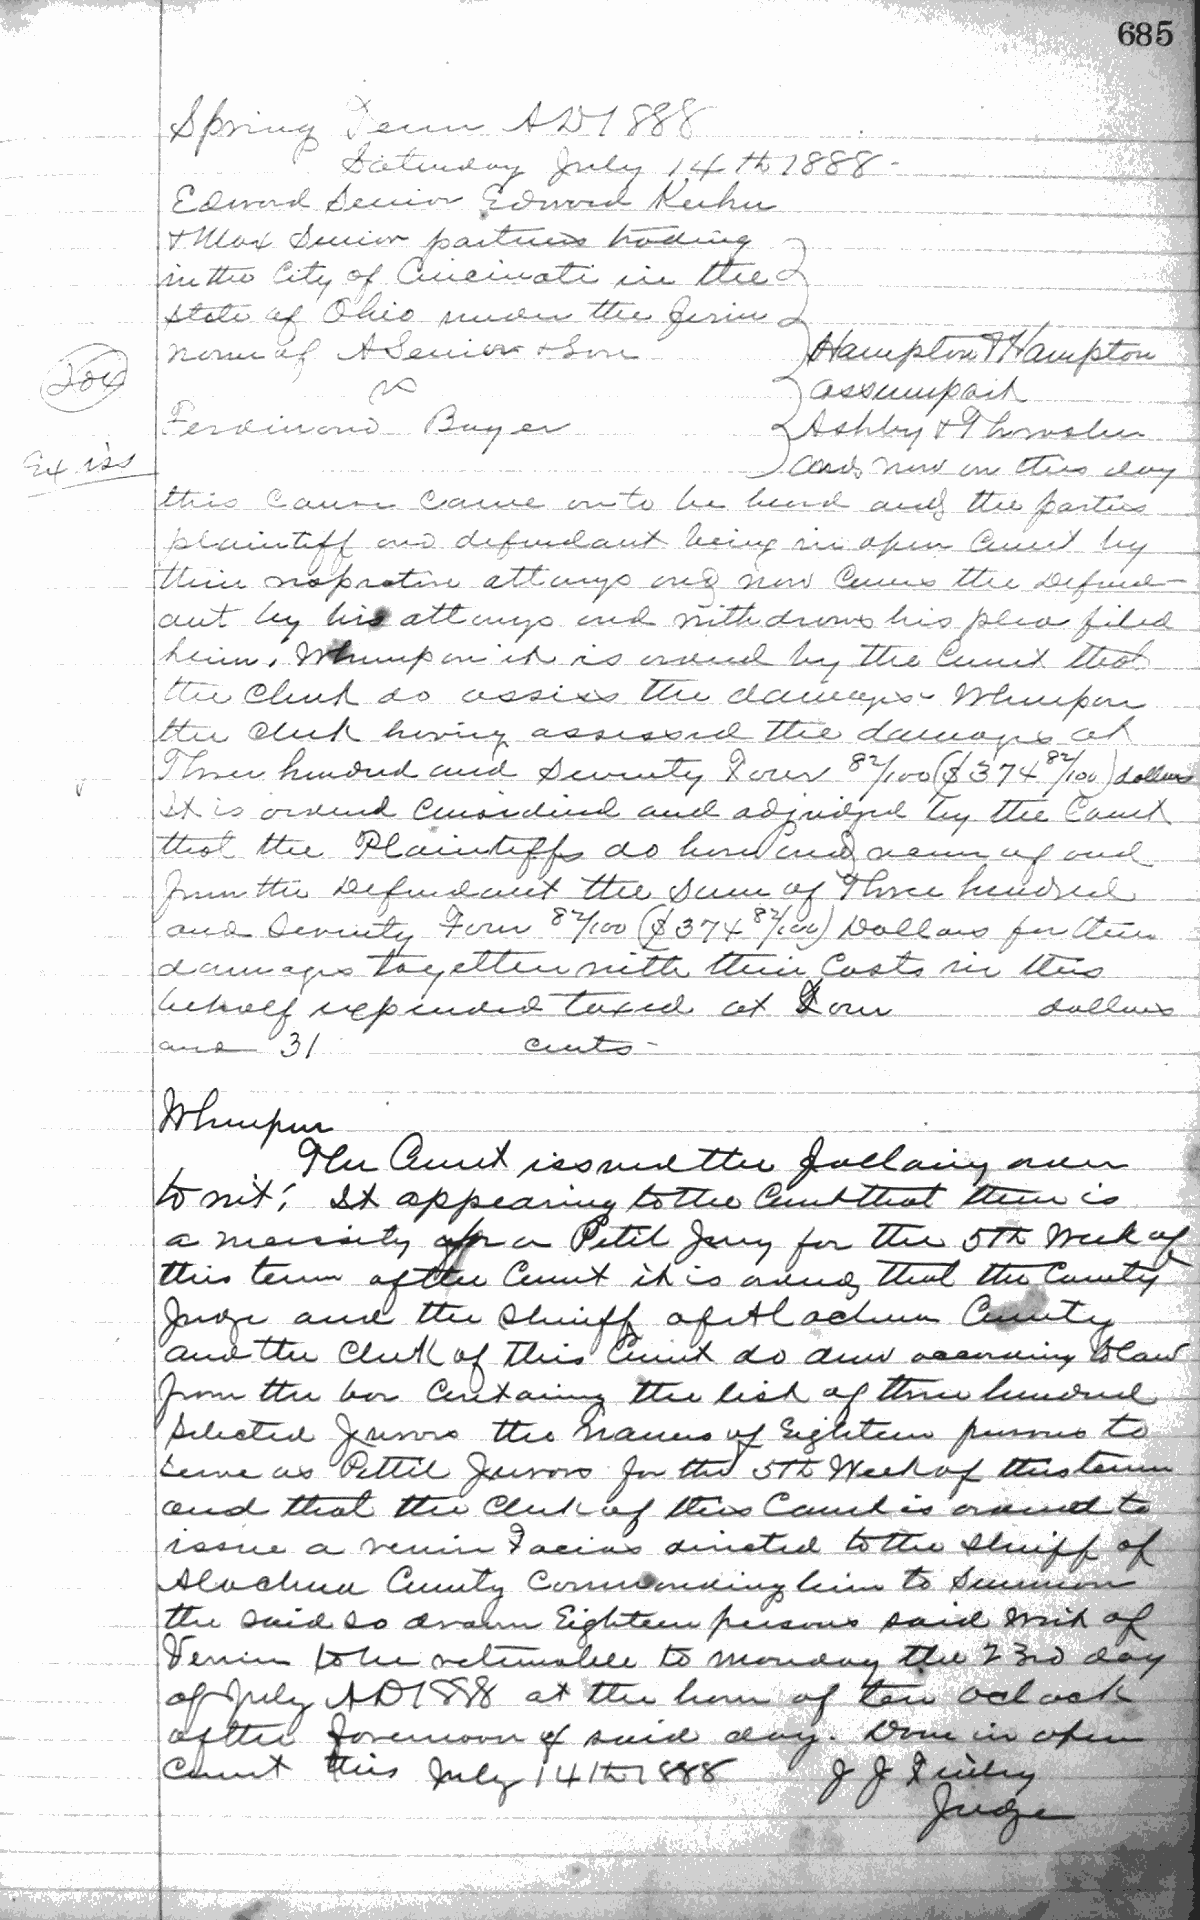 685
Spring Term AD 1888
Saturday July 14th 1888-
Edward Senior Edward Kuhn
& Max Senior partners trading
in the City of Cincinati in the
State of Ohio under the firm
name of A Senior & Son
Hampton & Hampton
204
vs
assumpsit
Ferdinand Bayer
Ashby &
Ex iss
And now on this day
this cause came on to be heard and the parties
plaintiff and defendant being in open Court by
their respective attorneys and now comes the Defend-
ant by his attorneys and withdraws his plea filed
herein. Whereupon it is ordered by the Court that
the Clerk do assess the damages- Whereupon
the Clerk having assessed the damages at
Three hundred and Seventy Four 82/100 ($374 82/100) dollars
It is ordered considered and adjudged by the Court
that the Plaintiffs do have and recover of and
from the Defendant the Sum of Three hundred
and Seventy Four 82/100 ($374 82/100) Dollars for their
damages together with their Costs in this
behalf expended taxed at Four dollars
and 31 cents-
Whereupon
The Court issued the following order
to wit: It appearing to the Court that there is
a necessity for a Petit Jury for the 5th Week of
this term of the Court it is ordered that the County
Judge and the Sheriff of Alachua County
and the Clerk of this Court do draw according to law
from the box containing the list of three hundred
Selected Jurors the Names of Eighteen persons to
Serve as Pettit Jurors for the 5th Week of this term
and that the Clerk of this Court is ordered to
issue a venire Facias directed to the Sheriff of
Alachua County Commanding him to Summon
the said so drawn Eighteen persons said Writ of
Venire to be returnable to monday the 23rd day
of July AD 1888 at the hour of ten oclock
of the forenoon of said day. Done in open
Court this July 14th 1888 J J Finley
Judge